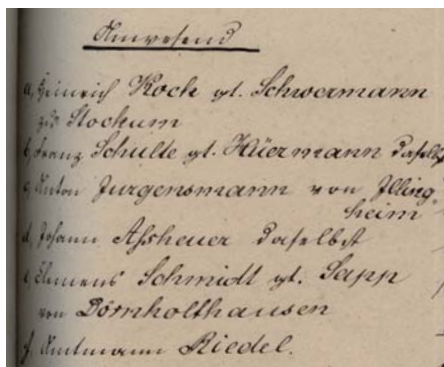 Anwesend
a, Heinrich Kock gt. Schwermann
zu Stockum
b, Franz Schulte gt. Hüermann daselbst
c, Anton Jurgensmann von Illing-
heim
d, Johann Assheuer daselbst
e, Clemens Schmidt gt. Sapp
von Dörnholthausen
f, Amtmann Riedel.